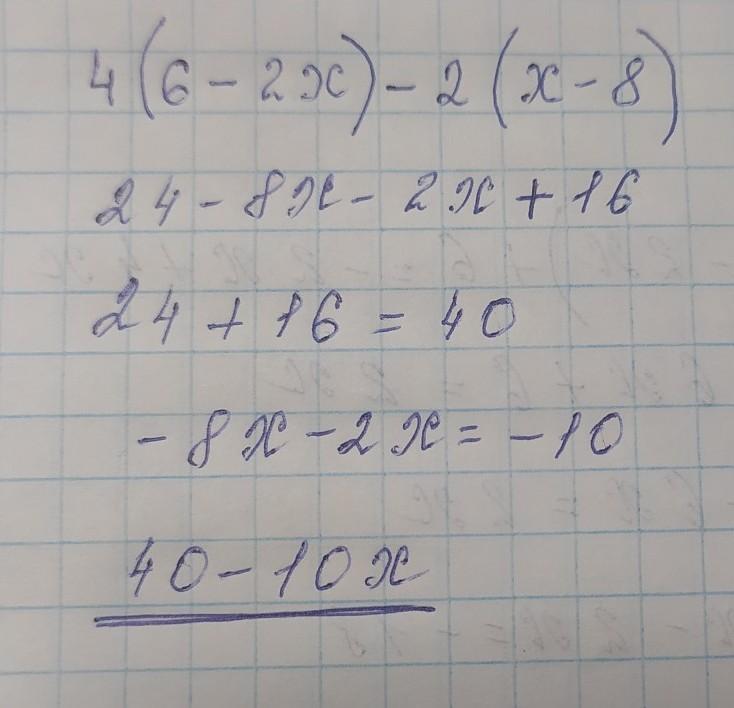 4(6 - 2x) - 2(x - 8)
24 - 8x - 2x + 16
24 + 16 = 40
- 8x - 2x = - 10
40 - 10x